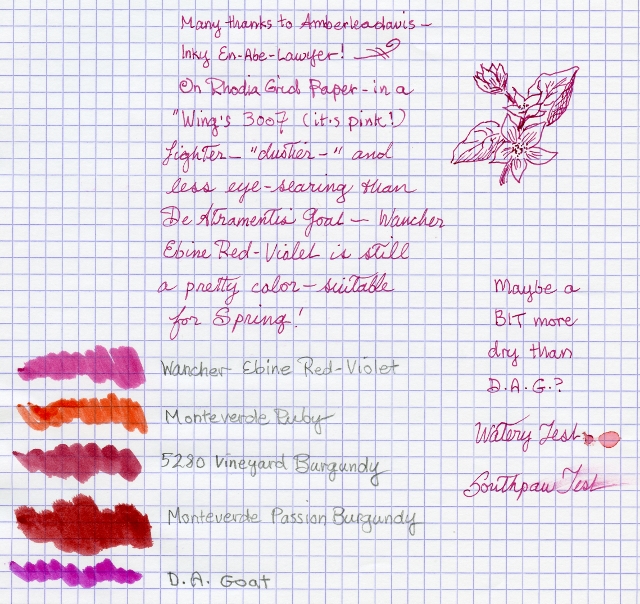 Many thanks to Amberleadavis –
Inky En-Abe-Lawyer!
On Rhodia Grid Paper – in a
"Wing's 3007 (it's pink!)
Lighter – "dustier –" and
less eye-searing than
De Atramentis Goat – Wancher
Ebine Red-Violet is still
a pretty color – suitable
for Spring!
Maybe a
BIT more
dry than
D.A.G.?
Watery Test
Southpaw Test
Wancher Ebine Red-Violet
Monteverde Ruby
5280 Vineyard Burgundy
Monteverde Passion Burgundy
D.A. Goat